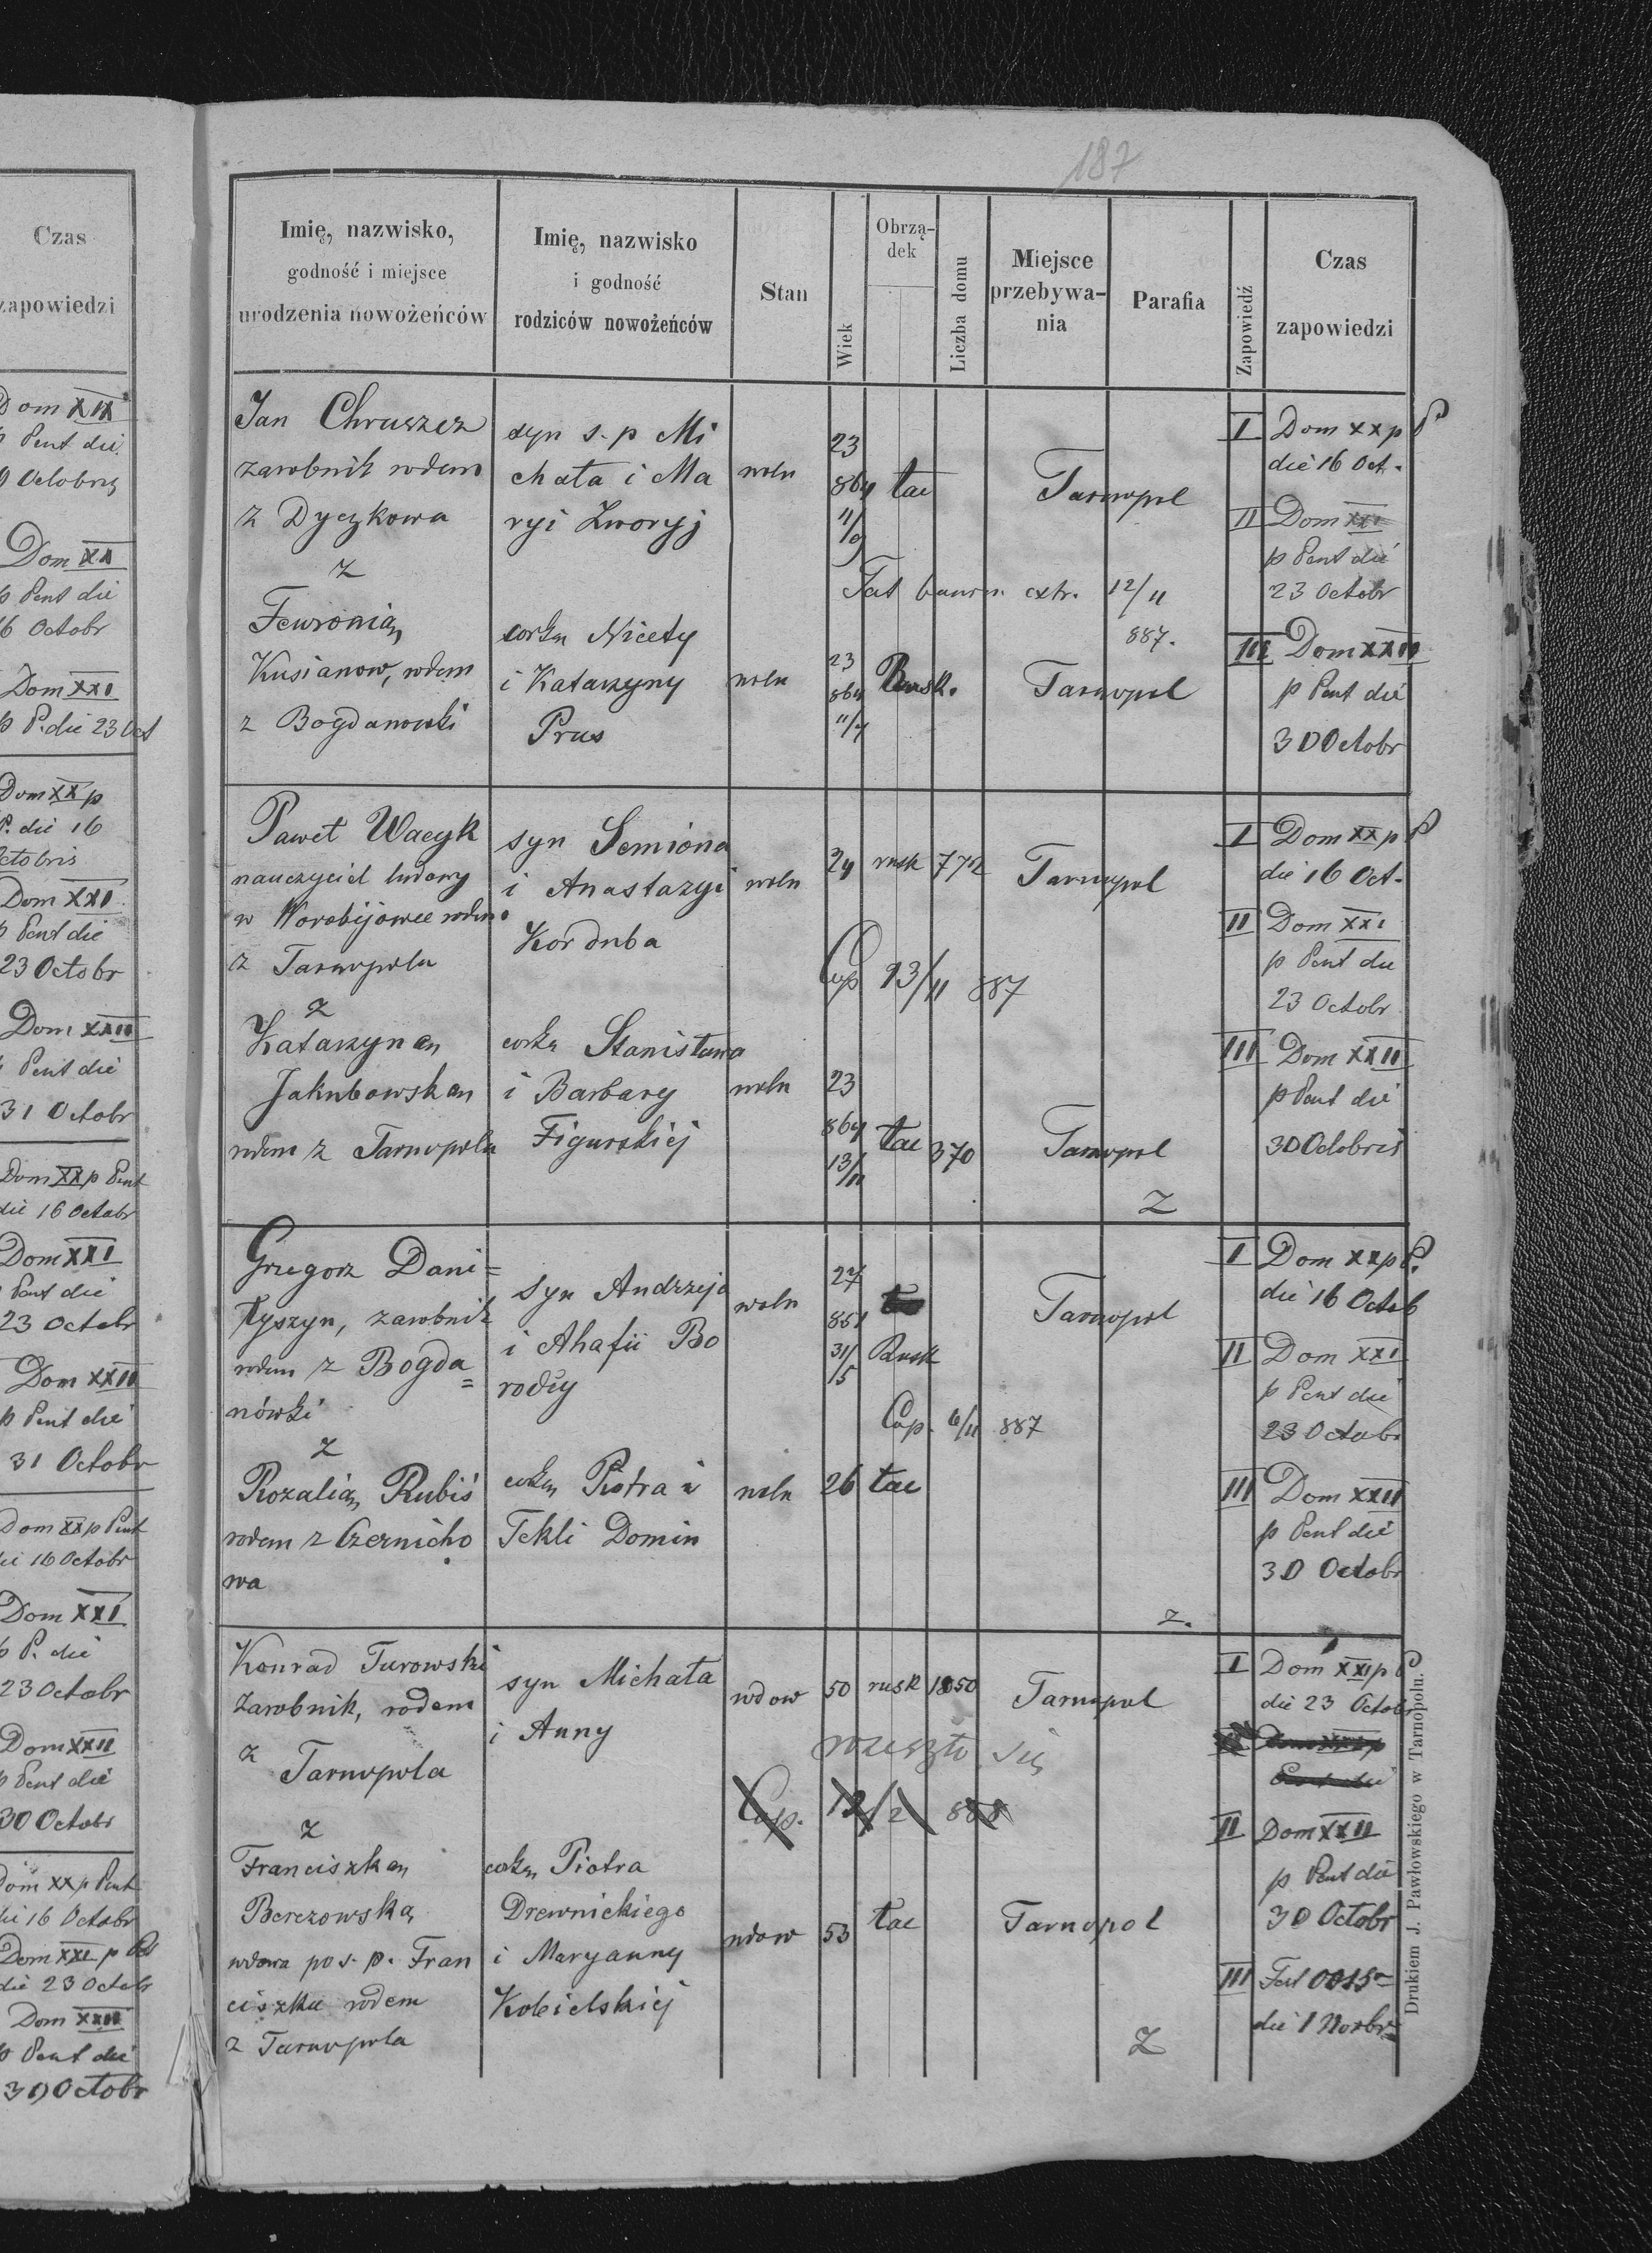 Czas
zapowiedzi
Dom XIX
p Pent die
9 Octobris
Dom XX
p Pent die
16 Octobr
Dom XXI
p P. die 23 Oct
Dom XX p
P. die 16
Octobris
Dom XXI
p Pent die
23 Octobr
Dom XXII
p Pent die
31 Octobr
Dom XX p Pent
die 16 Octobr
Dom XXI
p Pent die
23 Octobr
Dom XXII
p Pent die
31 Octobr
Dom XX p Pent
die 16 Octobr
Dom XXI
p P. die
23 Octobr
Dom XXII
p Pent die
30 Octobr
Dom XX p Pent
die 16 Octobr
Dom XXI p
die 23 Octobr
Dom XXII
p Pent die
30 Octobr
187
Imię, nazwisko,
godność i miejsce
urodzenia nowożeńców
Imię, nazwisko
i godność
rodziców nowożeńców
Stan
Wiek
Obrzą-
dek
Liczba domu
Miejsce
przebywa-
nia
Parafia
Zapowiedź
Czas
zapowiedzi
Jan Chruszcz
zarobnik rodem
z Dyczkowa
z
Fewronią
Kusianow, rodem
z Bogdanowski
syn s. p Mi
chała i Ma
ryi Zworyj
corka Nicety
i Katarzyny
Prus
woln
23
864
11/9
łac
Tarnopol
12/11
887.
woln
23
864
11/7
Rusk.
Tarnopol
I Dom XX p P
die 16 Oct.
II Dom XXI
p Pent die
23 Octobr
III Dom XXII
p Pent die
30 Octobr
Paweł Wacyk
nauczyciel ludowy
w Worobijowce rodem
z Tarnopola
z
Katarzyną
Jakubowską
rodem z Tarnopola
syn Semiona
i Anastazyi
Korduba
corka Stanisława
i Barbary
Figurskiej
woln
24
rusk
772
Tarnopol
Cop 13/11 887
woln
23
864
13/11
łac
370
Tarnopol
Z
I Dom XX p P
die 16 Oct.
II Dom XXI
p Pent die
23 Octobr
III Dom XXII
p Pent die
30 Octobris
Grzegorz Dani=
łyszyn, zarobnik
rodem z Bogda=
nówki
z
Rozalią Rubiś
rodem z Czernicho
wa
syn Andrzeja
i Ahafii Bo
rodiy
corką Piotra i
Tekli Domin
woln
27
861
31/5
Rusk
Tarnopol
Cop. 6/11 887
woln
26
łac
z.
I Dom XX p P.
die 16 Octob
II Dom XXI
p Pent die
23 Octobr
III Dom XXII
p Pent die
30 Octobr
Konrad Turowski
zarobnik, rodem
z Tarnopola
z
Franciszką
Berezowską
wdowa po s. p. Fran
ciszku rodem
z Tarnopola
syn Michała
i Anny
corką Piotra
Drewnickiego
i Maryanny
Kobielskiej
wdow
50
rusk
1850
Tarnopol
się
Cop. 12/2 888
wdow
53
łac
Tarnopol
Z
I Dom XXI p P
die 23 Octobr
II Dom XXII
p Pent die
30 Octobr
III Fest OO SS
die 1 Novbr
Drukiem J. Pawłowskiego w Tarnopolu.